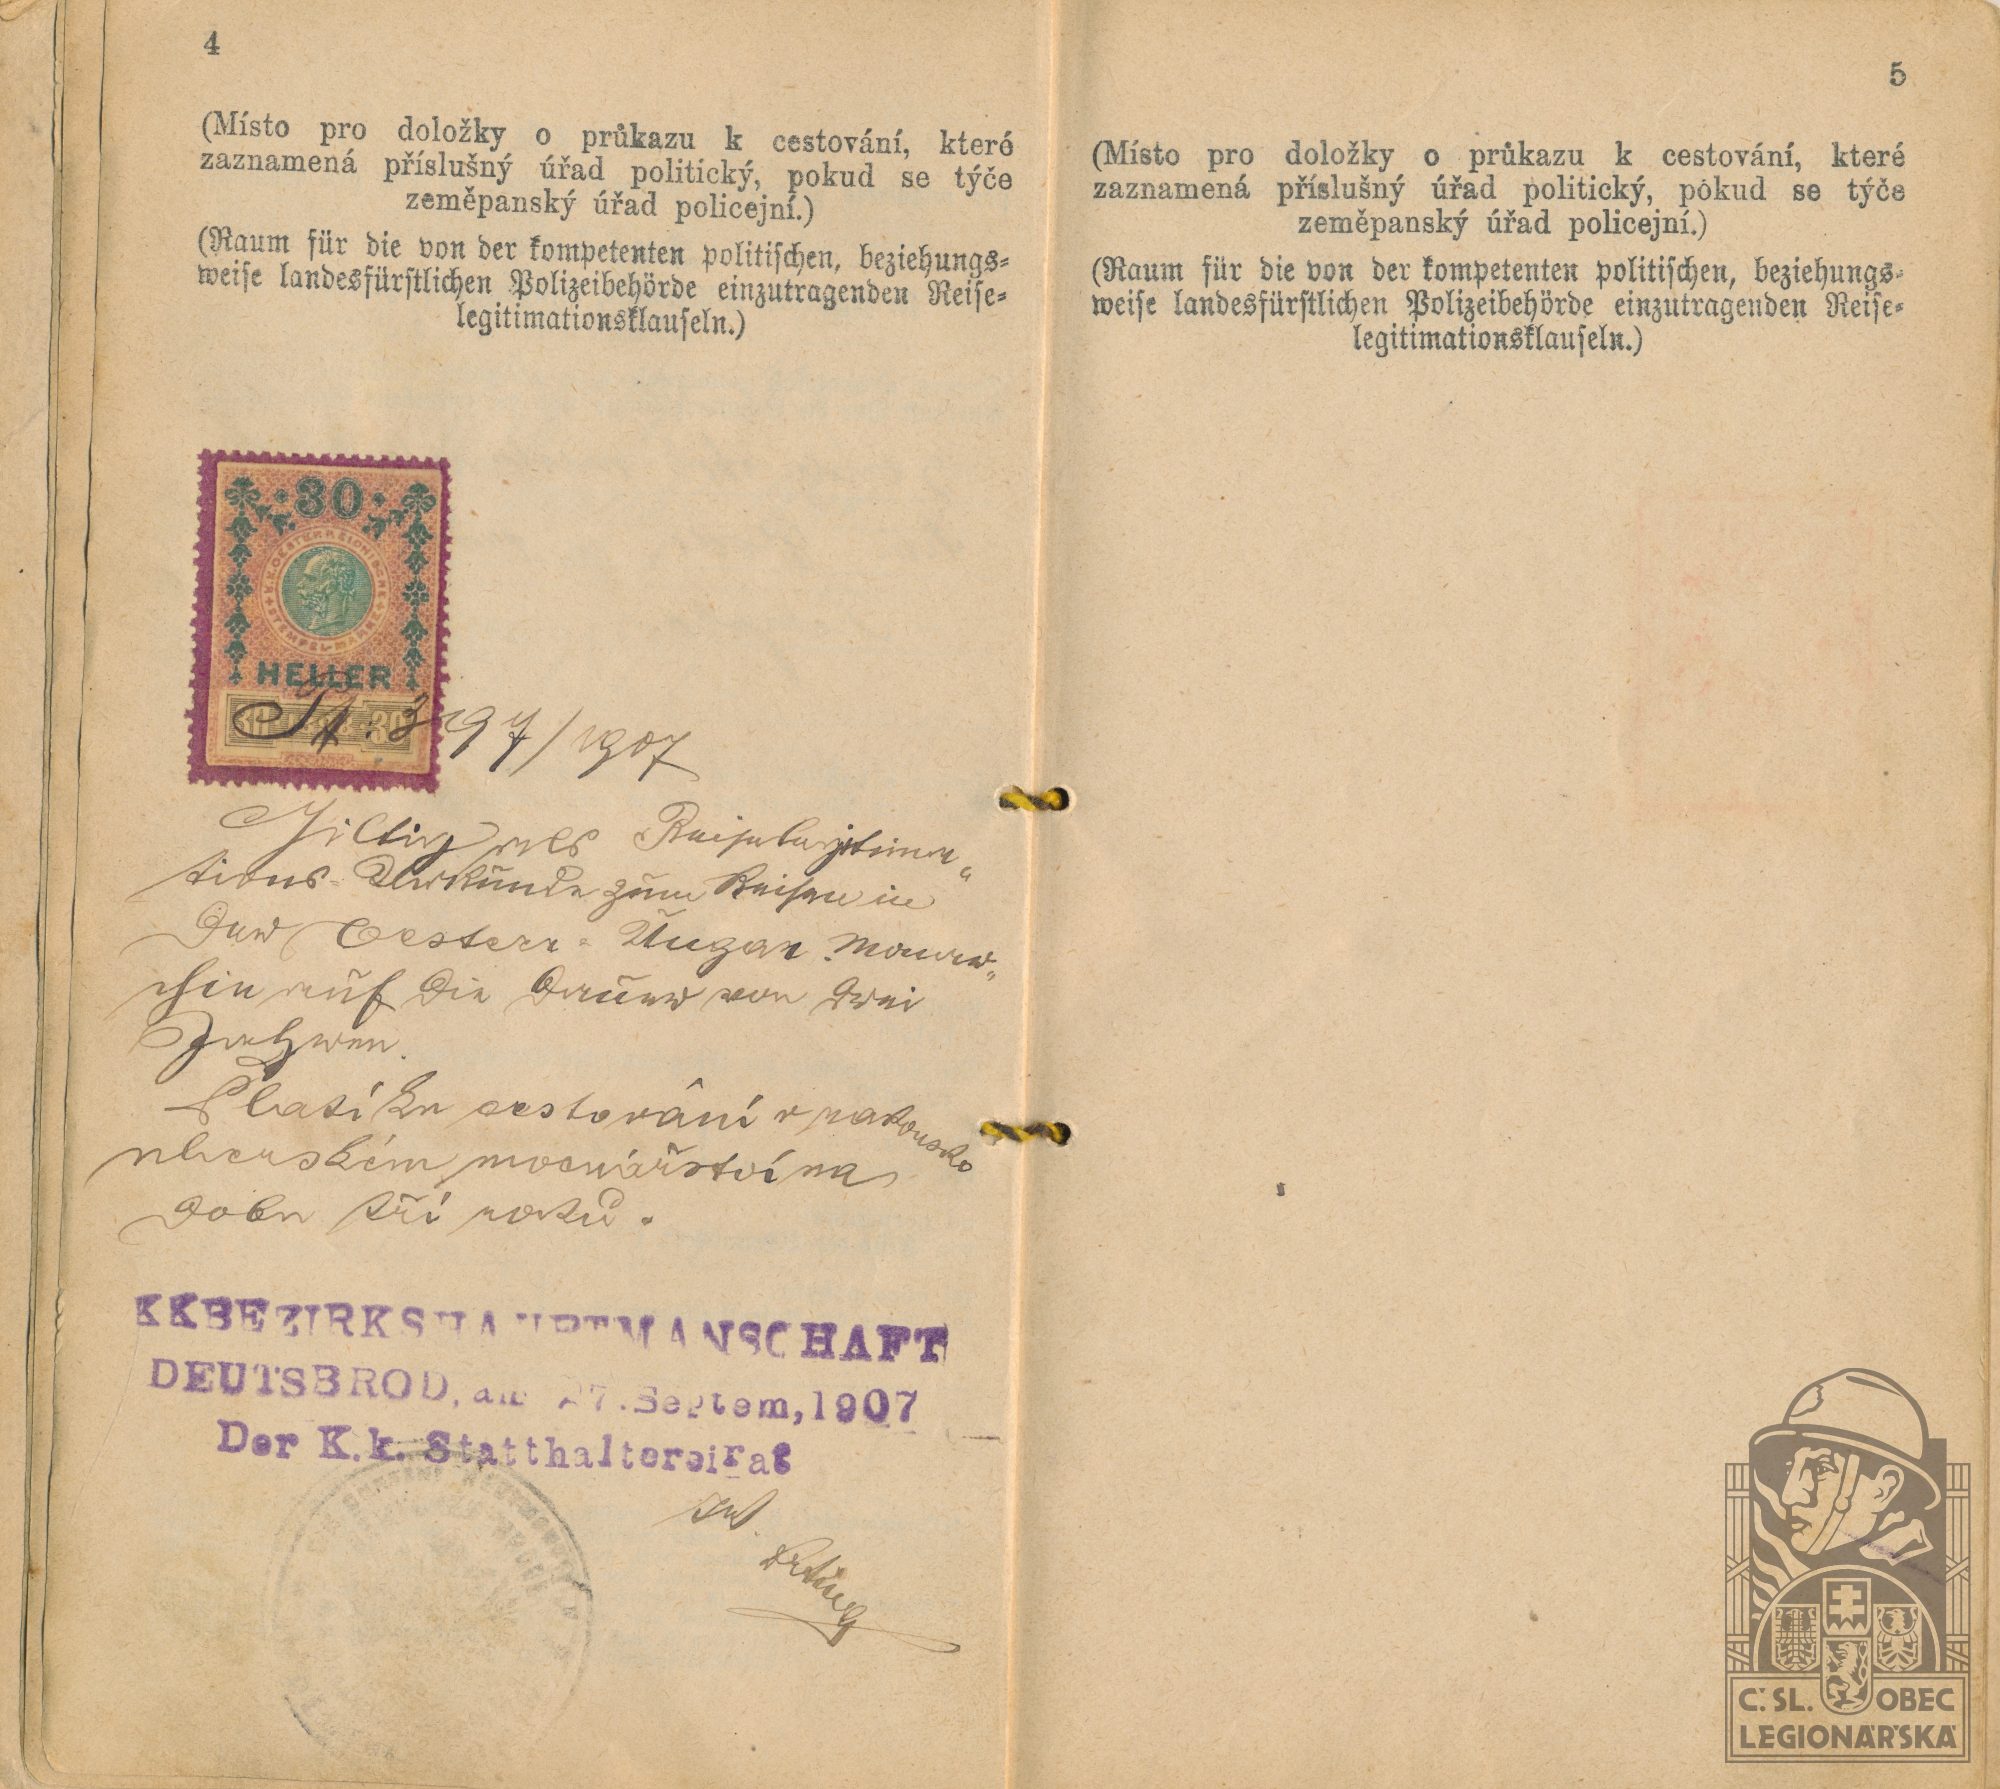 4
(Místo pro doložky o průkazu k cestování, které
zaznamená příslušný úřad politický, pokud se týče
zeměpanský úřad policejní.)
(Raum für die von der kompetenten politischen, beziehungs-
weise landesfürstlichen Polizeibehörde einzutragenden Reise-
legitimationsklauseln.)
30
K.K. OESTERREICHISCHE STEMPEL-MARKE
HELLER
30 30
3797/1907
Giltig als Reiselegitima„
tions-Urkunde zum Reisen in
der Oesterr.-Ungar. Monar„
chie auf die Dauer von drei
Jahren.
Platí ku cestování v rakousko
uherském mocnářství na
dobu tří roků.
KKBEZIRKSHAUPTMANSCHAFT
DEUTSBROD, am 27.Septem,1907
Der K.k. Statthaltereirat
5
(Místo pro doložky o průkazu k cestování, které
zaznamená příslušný úřad politický, pokud se týče
zeměpanský úřad policejní.)
(Raum für die von der kompetenten politischen, beziehungs-
weise landesfürstlichen Polizeibehörde einzutragenden Reise-
legitimationsklauseln.)
Č. SL. OBEC
LEGIONÁŘSKÁ